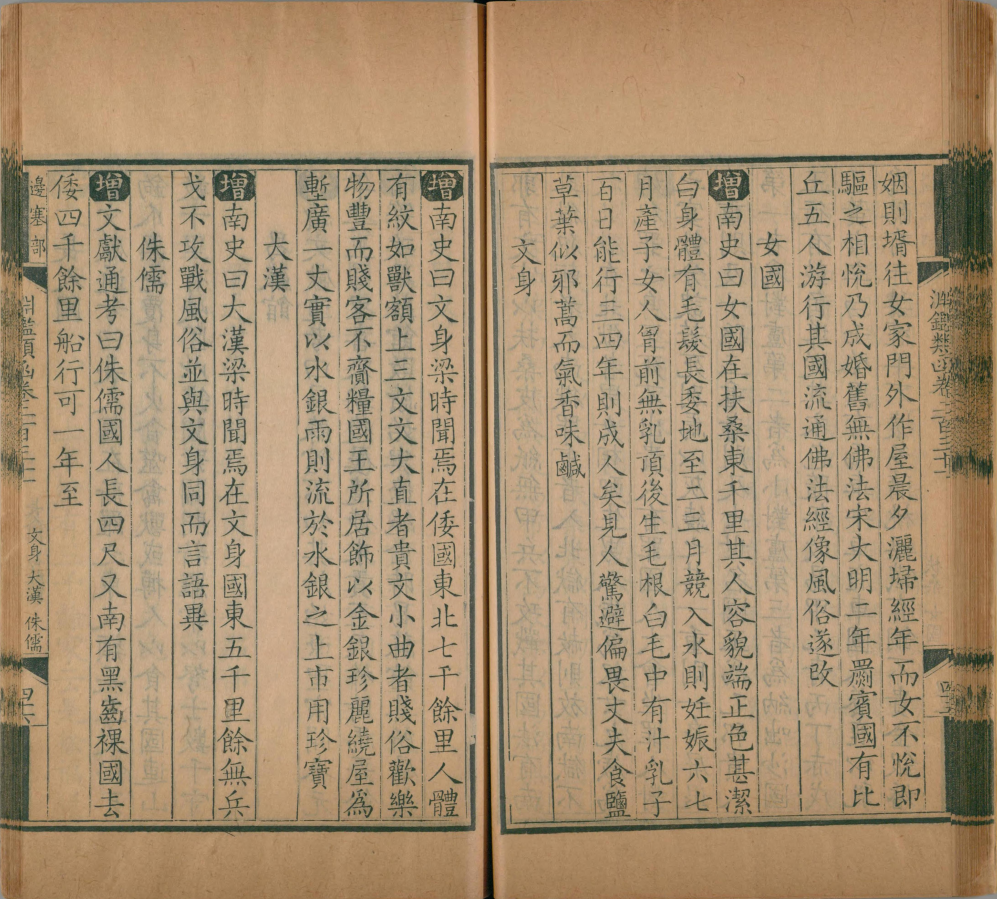 姻則壻往女家門外作屋晨夕灑埽經年而女不悅即
驅之相悅乃成婚舊無佛法宋大明二年罽賓國有比
丘五人游行其國流通佛法經像風俗遂改
女國
增南史曰女國在扶桑東千里其人容貌端正色甚潔
白身體有毛髮長委地至二三月競入水則妊娠六七
月產子女人胷前無乳項後生毛根白毛中有汁乳子
百日能行三四年則成人矣見人驚避偏畏丈夫食鹽
草葉似邪蒿而氣香味鹹
文身
增南史曰文身梁時聞焉在倭國東北七千餘里人體
有紋如獸額上三文文大直者貴文小曲者賤俗歡樂
物豐而賤客不齎糧國王所居飾以金銀珍麗繞屋爲
塹廣一丈實以水銀雨則流於水銀之上市用珍寶
大漢
增南史曰大漢梁時聞焉在文身國東五千里餘無兵
戈不攻戰風俗並與文身同而言語異
侏儒
增文獻通考曰侏儒國人長四尺又南有黑齒裸國去
倭四千餘里船行可一年至
邊塞部
文身 大漢 侏儒
四十六